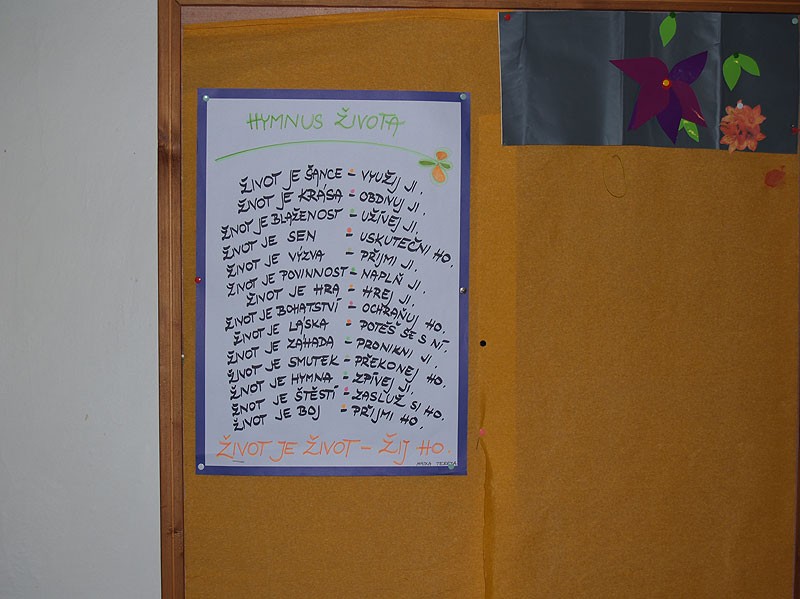 HYMNUS ŽIVOTA
ŽIVOT JE ŠANCE - VYUŽIJ JI.
ŽIVOT JE KRÁSA - OBDIVUJ JI.
ŽIVOT JE BLAŽENOST - UŽÍVEJ JI.
ŽIVOT JE SEN - USKUTEČNI HO.
ŽIVOT JE VÝZVA - PŘIJMI JI.
ŽIVOT JE POVINNOST - NAPLŇ JI.
ŽIVOT JE HRA - HREJ JI.
ŽIVOT JE BOHATSTVÍ - OCHRAŇUJ HO.
ŽIVOT JE LÁSKA - POTĚŠ SE S NÍ.
ŽIVOT JE ZÁHADA - PRONIKNI JI.
ŽIVOT JE SMUTEK - PŘEKONEJ HO.
ŽIVOT JE HYMNA - ZPÍVEJ JI.
ŽIVOT JE ŠTĚSTÍ - ZASLUŽ SI HO.
ŽIVOT JE BOJ - PŘIJMI HO.
ŽIVOT JE ŽIVOT - ŽIJ HO.
MATKA TEREZA